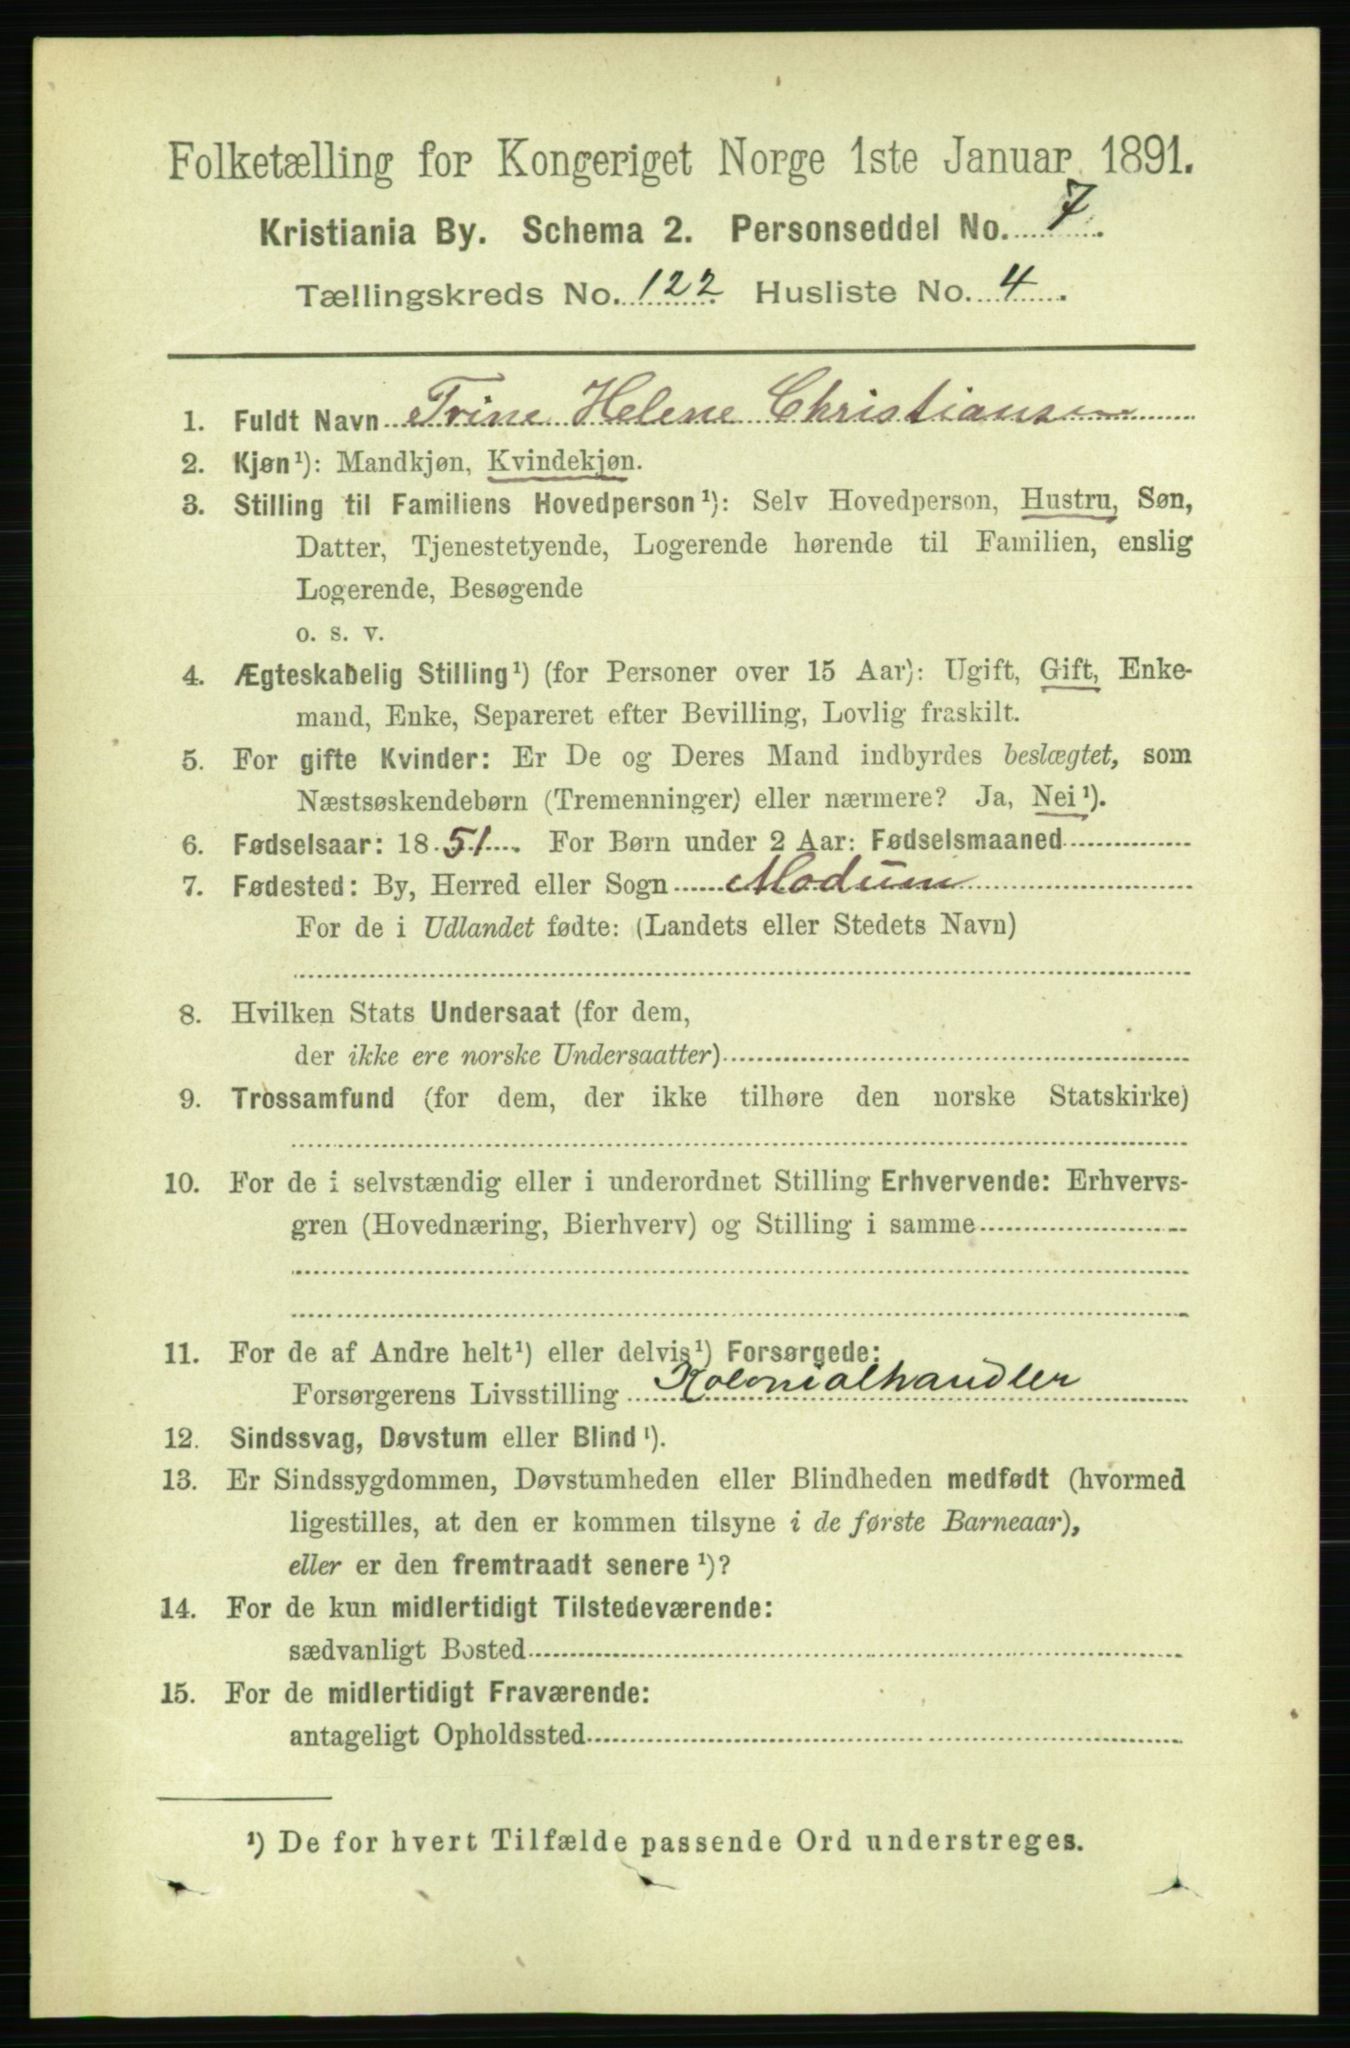 Folketælling for Kongeriget Norge 1ste Januar 1891.
Kristiania By. Schema 2. Personseddel No. 7.
Tællingskreds No. 122. Husliste No. 4.
1. Fuldt Navn Trine Helene Christiansen
2. Kjøn¹): Mandkjøn, Kvindekjøn.
3. Stilling til Familiens Hovedperson¹): Selv Hovedperson, Hustru, Søn,
Datter, Tjenestetyende, Logerende hørende til Familien, enslig
Logerende, Besøgende
o. s. v.
4. Ægteskabelig Stilling¹) (for Personer over 15 Aar): Ugift, Gift, Enke-
mand, Enke, Separeret efter Bevilling, Lovlig fraskilt.
5. For gifte Kvinder: Er De og Deres Mand indbyrdes beslægtet, som
Næstsøskendebørn (Tremenninger) eller nærmere? Ja, Nei¹).
6. Fødselsaar: 1851. For Børn under 2 Aar: Fødselsmaaned
7. Fødested: By, Herred eller Sogn Modum
For de i Udlandet fødte: (Landets eller Stedets Navn)
8. Hvilken Stats Undersaat (for dem,
der ikke ere norske Undersaatter)
9. Trossamfund (for dem, der ikke tilhøre den norske Statskirke)
10. For de i selvstændig eller i underordnet Stilling Erhvervende: Erhvervs-
gren (Hovednæring, Bierhverv) og Stilling i samme
11. For de af Andre helt¹) eller delvis¹) Forsørgede:
Forsørgerens Livsstilling Kolonialhandler
12. Sindssvag, Døvstum eller Blind¹).
13. Er Sindssygdommen, Døvstumheden eller Blindheden medfødt (hvormed
ligestilles, at den er kommen tilsyne i de første Barneaar),
eller er den fremtraadt senere¹)?
14. For de kun midlertidigt Tilstedeværende:
sædvanligt Bosted
15. For de midlertidigt Fraværende:
antageligt Opholdssted
¹) De for hvert Tilfælde passende Ord understreges.